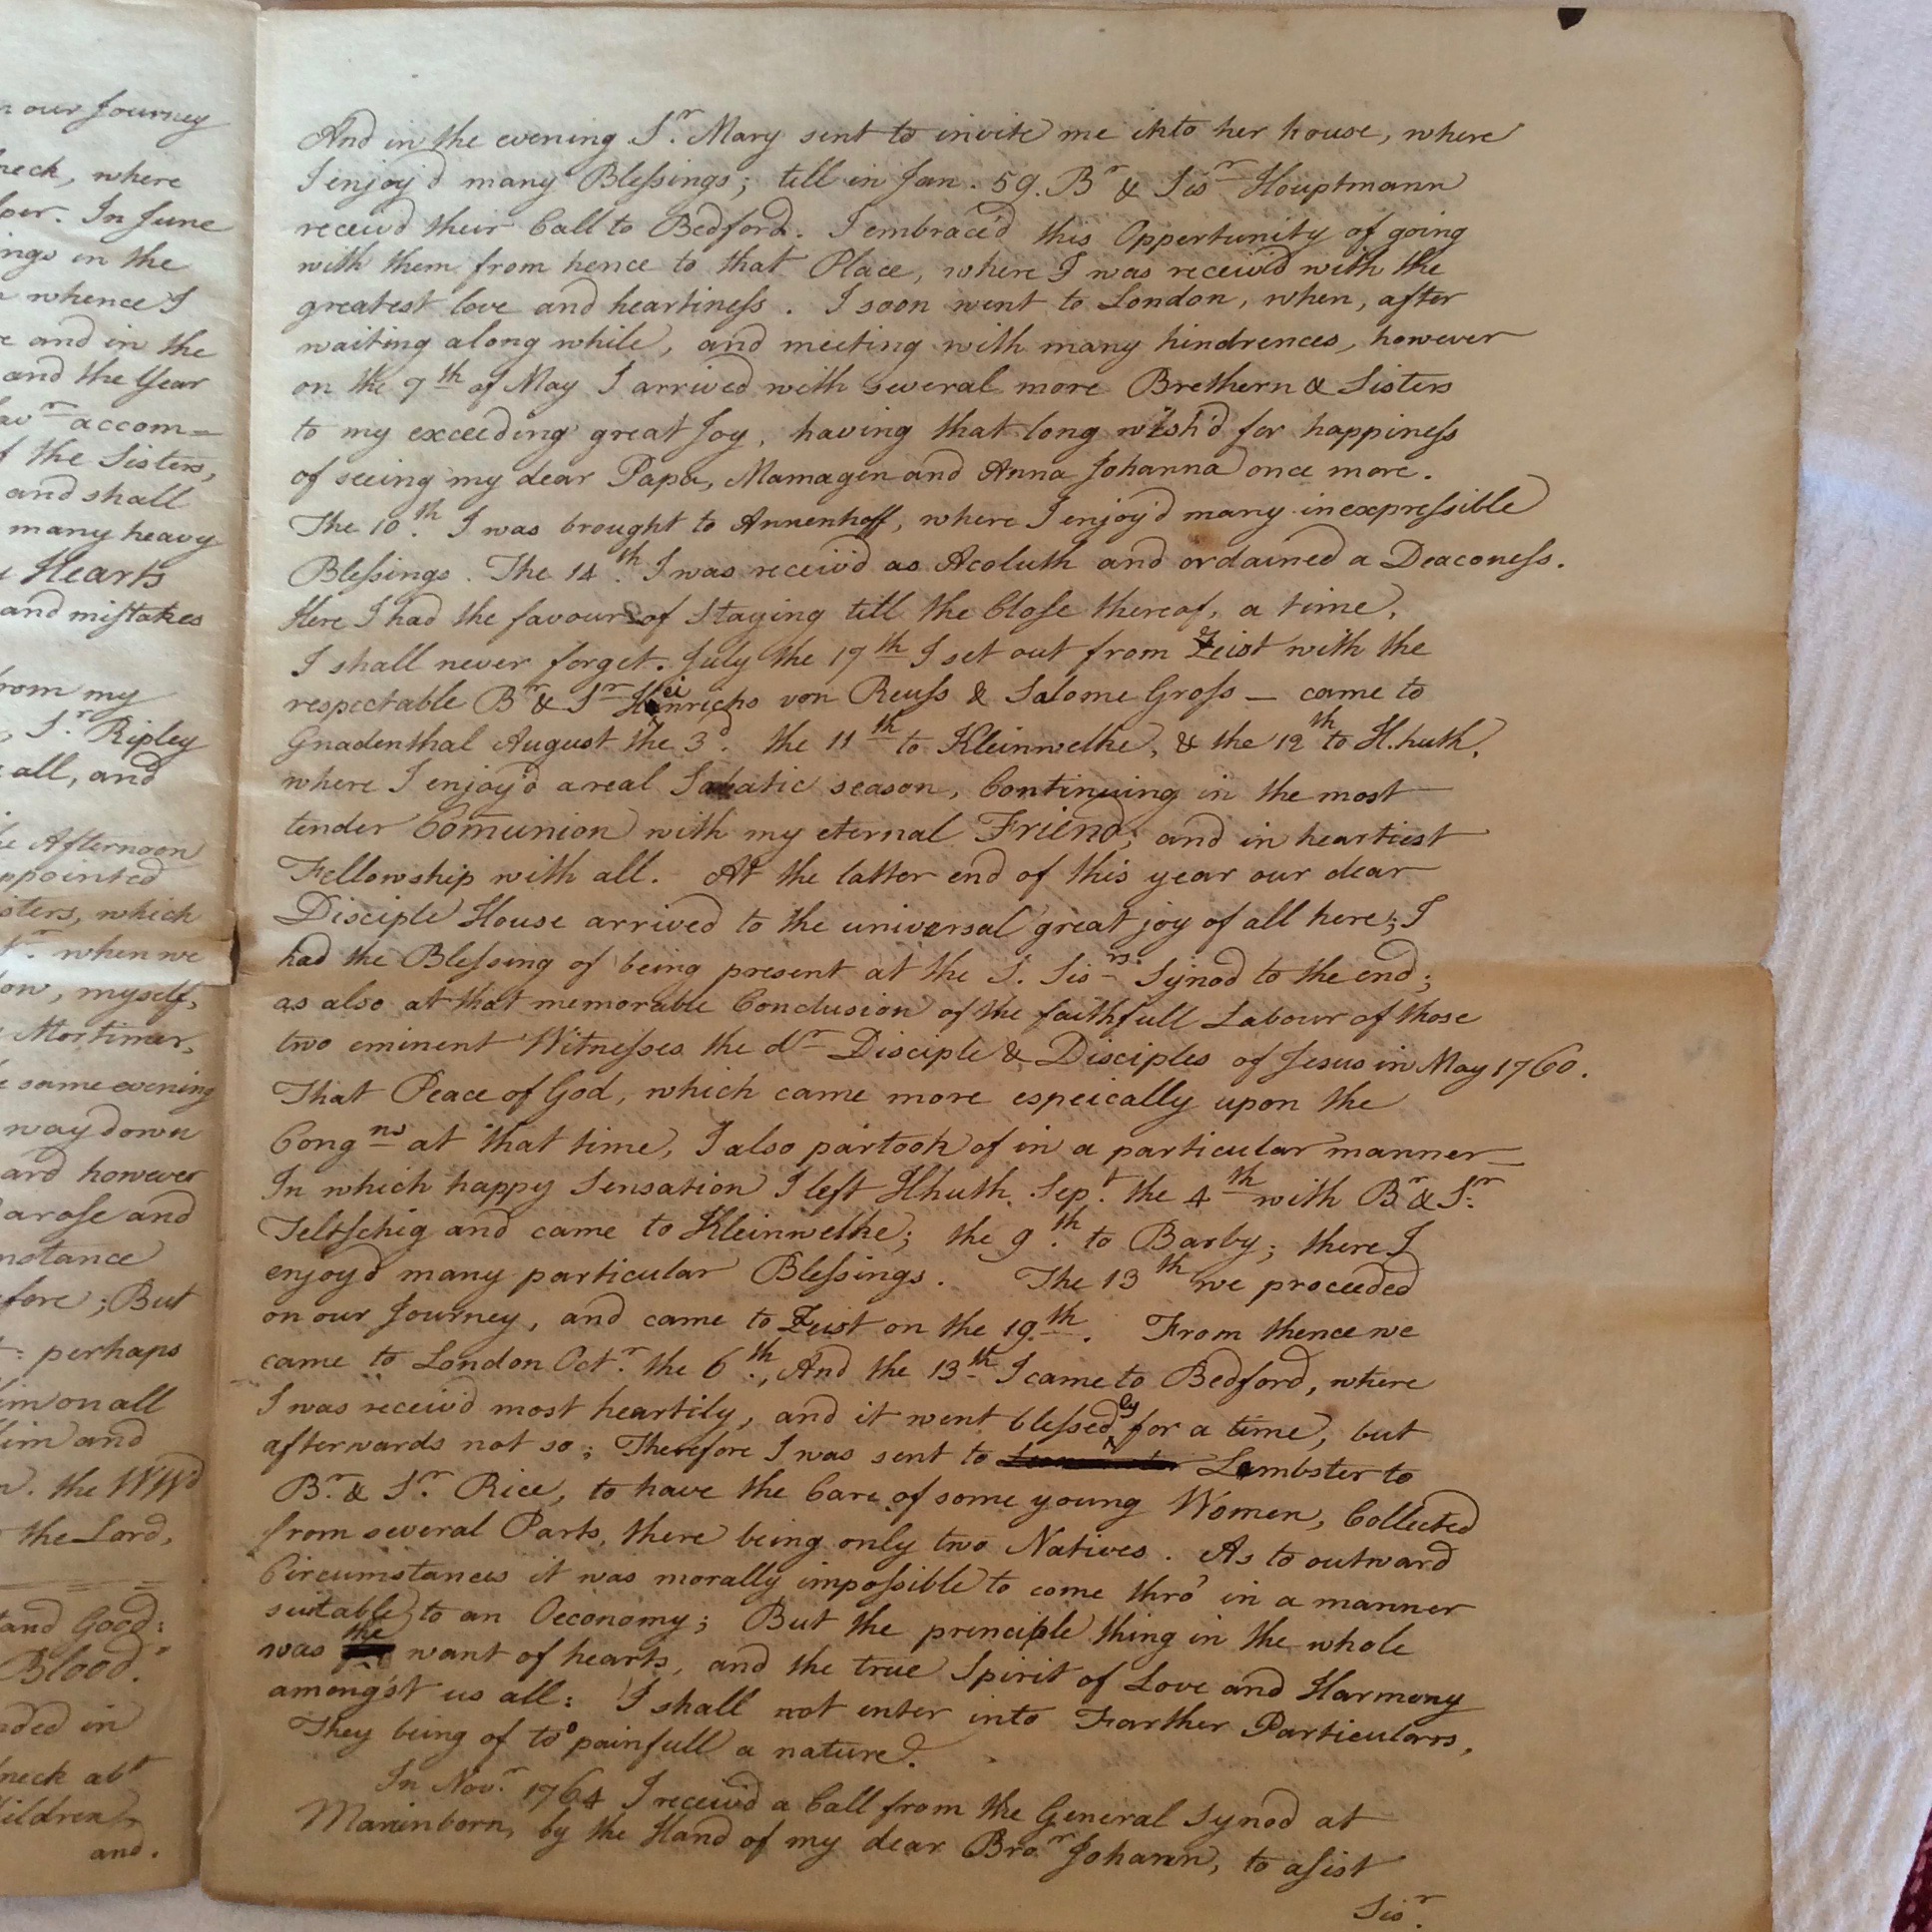 n our Journey
neck, where
per. In June
ings in the
whence I
e and in the
and the Year
av.r accom=
f the Sisters,
and shall
many heavy
Hearts
and mistakes
rom my
S.r Ripley
all, and
e Afternoon
ppointed
sters, which
when we
ow, myself,
Mortimer,
e same evening
way down
ard however
arose and
mstance
fore; But
perhaps
im on all
im and
the WWd
the Lord,
and Good:
Blood."
nded in
neck abt
ildren
and.
And in the evening S.r Mary sent to invite me into her house, where
I enjoy'd many Blessings; till in Jan. 59. Br & Sisr Houptmann
receiv'd their Call to Bedford. I embrac'd this Oppertunity of going
with them from hence to that Place, where I was receiv'd with the
greatest love and heartiness. I soon went to London, when, after
waiting along while, and meeting with many hindrences, however
on the 7th of May I arrived with several more Brethern & Sisters
to my exceeding great Joy, having that long wish'd for happiness
of seeing my dear Papa, Mamagen and Anna Johanna once more.
The 10th. I was brought to Annenhoff, where I enjoy'd many inexpressible
Blessings. The 14th. I was receiv'd as Acoluth and ordained a Deaconess.
Here I had the favour of Staying till the Close thereof, a time,
I shall never forget. July the 17th I set out from Zeist with the
respectable Br & Sr Heinrichs von Reuss & Salome Gross — came to
Gnadenthal August the 3d. the 11th to Kleinwelke, & the 12th to H.huth,
where I enjoy'd a real Sabatic season, Continuing in the most
tender Com̄union with my eternal Friend; and in heartiest
Fellowship with all. At the latter end of this year our dear
Disciple House arrived to the universal great joy of all here; I
had the Blessing of being present at the S. Sisrs. Synod to the end;
as also at that memorable Conclusion of the faithfull Labour of those
two eminent Witnesses the dr Disciple & Disciples of Jesus in May 1760.
That Peace of God, which came more espeically upon the
Congns at that time, I also partook of in a particular manner—
In which happy Sensation I left Hhuth. Sept. the 4th with Br & Sr.
Teltschig and came to Kleinwelke; the 9th. to Barby; there I
enjoy'd many particular Blessings. The 13th we proceeded
on our Journey, and came to Zeist on the 19th. From thence we
came to London Octr. the 6th., And the 13th I came to Bedford, where
I was receiv'd most heartily, and it went blessedly for a time, but
afterwards not so; Therefore I was sent to Lembster to
Br. & Sr. Rice, to have the Care of some young Women, Collected
from several Parts, there being only two Natives. As to outward
Circumstances it was morally impossible to come thro' in a manner
suitable to an Oeconomy; But the principle thing in the whole
was the want of hearts, and the true Spirit of Love and Harmony
among'st us all: I shall not enter into Farther Particulars,
They being of too painfull a nature.
In Novr. 1764 I receiv'd a Call from the General Synod at
Marienborn, by the Hand of my dear Bror Johann, to asist
Sisr.